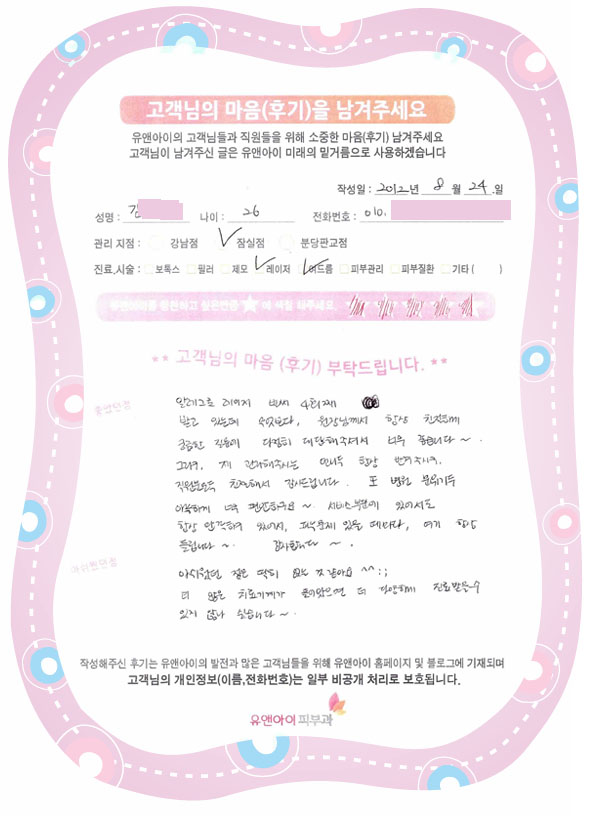 고객님의 마음(후기)을 남겨주세요
유앤아이의 고객님들과 직원들을 위해 소중한 마음(후기) 남겨주세요
고객님이 남겨주신 글은 유앤아이 미래의 밑거름으로 사용하겠습니다
작성일 : 2012년 8 월 24 .일
성명 : 김 나이 : 26 전화번호 : 010.
관리 지점 : 강남점 잠실점 분당판교점
진료,시술 : 보톡스 필러 제모 레이저 여드름 피부관리 피부질환 기타 ( )
유앤아이를 칭찬하고 싶은만큼 에 색칠 해주세요.
** 고객님의 마음 (후기) 부탁드립니다. **
좋았던점
알레그로 레이저 벌써 4회째
받고 있는데 무엇보다, 원장님께서 항상 친절하게
궁금한 질문에 다정히 대답해주셔서 너무 좋습니다 ~.
그리구, 제 관리해주시는 언니두 항상 반겨주시구,
직원분들두 친절해서 감사드립니다. 또 병원 분위기두
아늑하게 너무 편안하구요 ~ 서비스부분에 있어서도
항상 만족하고 있어서, 피부문제 있을 때마다, 여기 항상
들립니다 ~. 감사합니다 ~.
아쉬웠던점
아쉬웠던 점은 딱히 없는 것 같아요 ^^;;
더 많은 치료기계가 들어왔으면 더 다양하게 진료받을수
있지 않나 싶습니다 ~.
작성해주신 후기는 유앤아이의 발전과 많은 고객님들을 위해 유앤아이 홈페이지 및 블로그에 기재되며
고객님의 개인정보(이름,전화번호)는 일부 비공개 처리로 보호됩니다.
유앤아이피부과